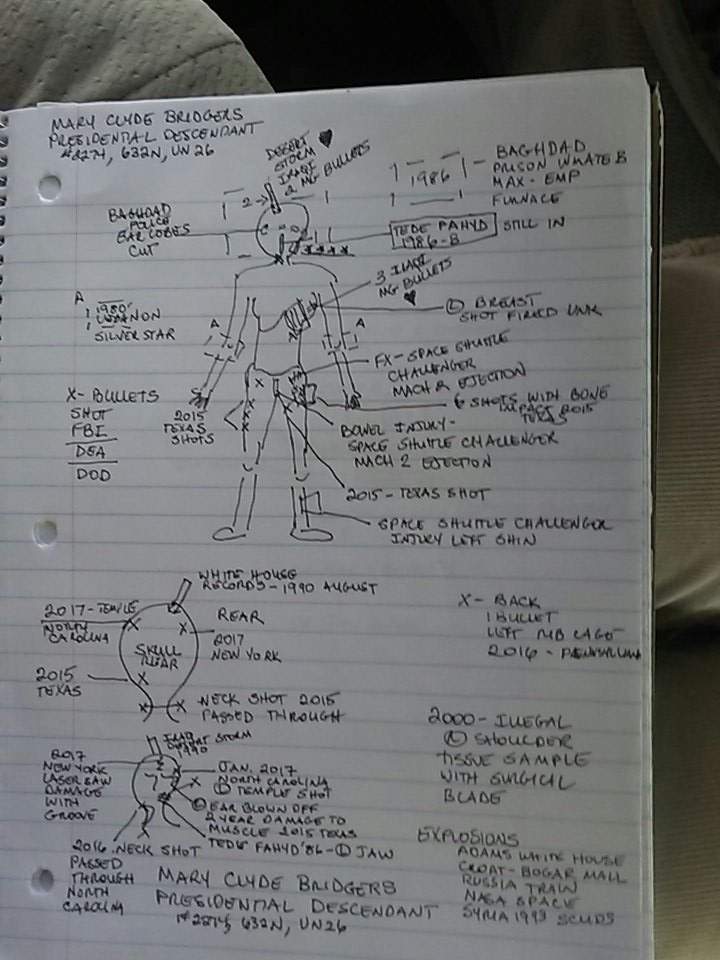 MARY CLYDE BRIDGERS
PRESIDENTIAL DESCENDANT
632N, UN 26
DESERT
STORM
IRAQI
2 MG BULLETS
2
1986
BAGHDAD
PRISON INMATE B
MAX - EMP
FURNACE
BAGHDAD
POLICE
EAR LOBES
CUT
TEDE FAHYD
1986-B
STILL IN
3 IRAQI
MG BULLETS
L BREAST
SHOT FIRED
A
1980'
LEBANON
SILVER STAR
A
A
FX - SPACE SHUTTLE
CHALLENGER
MACH 2 EJECTION
X - BULLETS
SHOT
FBI
DEA
DOD
2015
TEXAS
SHOTS
6 SHOTS WITH BONE
IMPACT 2015
TEXAS
BOWEL INJURY -
SPACE SHUTTLE CHALLENGER
MACH 2 EJECTION
2015 - TEXAS SHOT
SPACE SHUTTLE CHALLENGER
INJURY LEFT SHIN
WHITE HOUSE
RECORDS - 1990 AUGUST
2017 - TEMPLE
NORTH
CAROLINA
SKULL
REAR
REAR
2017
NEW YORK
2015
TEXAS
NECK SHOT 2015
PASSED THROUGH
X - BACK
1 BULLET
LEFT RIB CAGE
2016 - PENNSYLVANIA
IRAQ
DESERT STORM
1990
2017
NEW YORK
LASER SAW
DAMAGE
WITH
GROOVE
JAN. 2017
NORTH CAROLINA
L TEMPLE SHOT
EAR BLOWN OFF
2 YEAR DAMAGE TO
MUSCLE 2015 TEXAS
TEDE FAHYD '86 - L JAW
2016 NECK SHOT
PASSED
THROUGH
NORTH
CAROLINA
2000 - ILLEGAL
SHOULDER
TISSUE SAMPLE
WITH SURGICAL
BLADE
EXPLOSIONS
ADAMS WHITE HOUSE
CROAT - BOGAR MALL
RUSSIA TRAIN
NASA SPACE
SYRIA 1993 SCUDS
MARY CLYDE BRIDGERS
PRESIDENTIAL DESCENDANT
632N, UN26